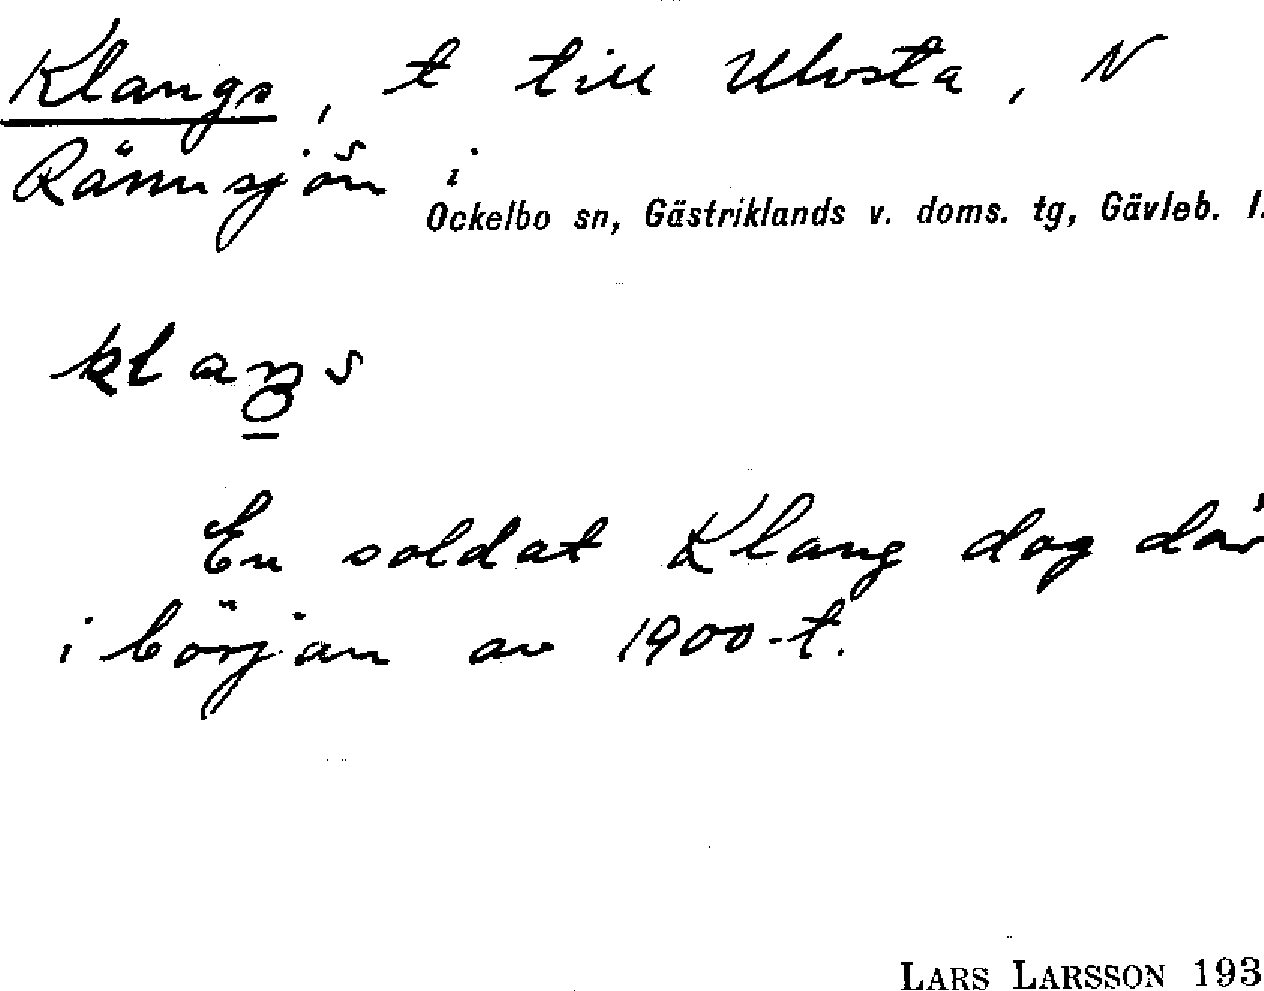 Klangs, t till Ulvsta, N
Rännsjön i
Ockelbo sn, Gästriklands v. doms. tg, Gävleb. l.
klaŋs
En soldat Klang dog där
i början av 1900-t.
LARS LARSSON 193